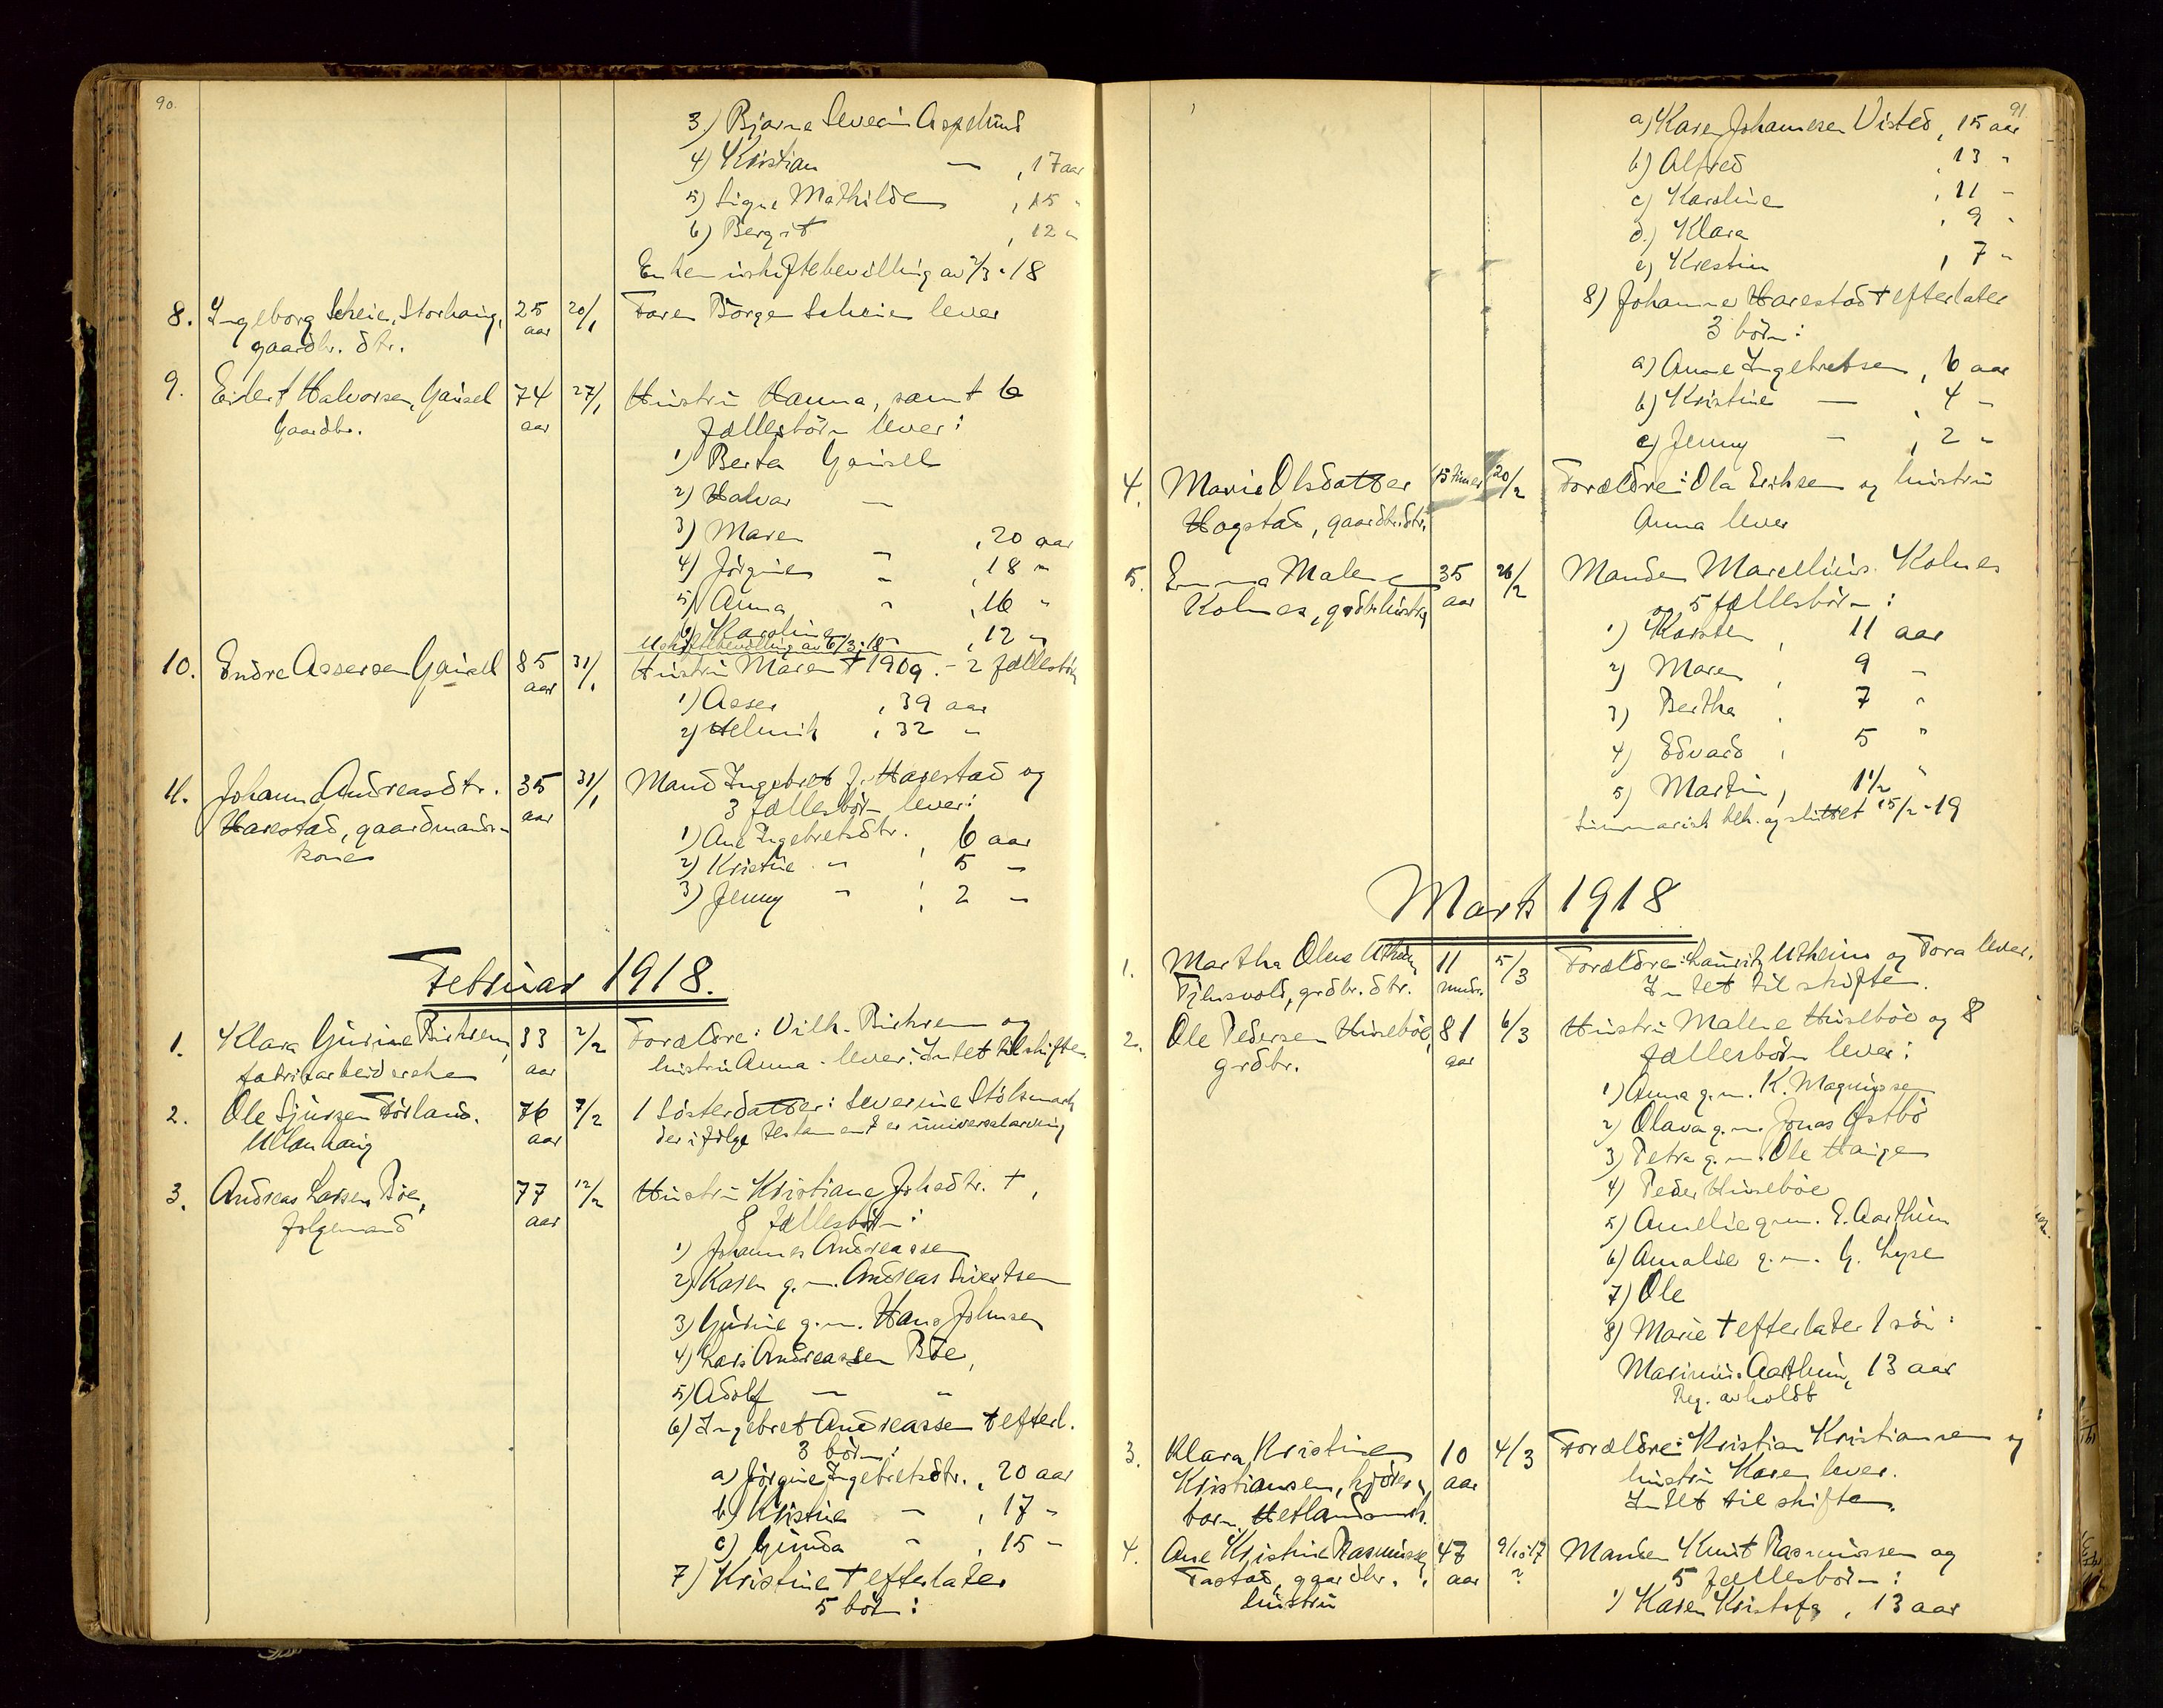 90.
3) Bjarne Severin Aspelund
4) Kristian — , 17 aar
5) Signe Mathilde , 15 "
6) Bergit , 12 "
Enken uskiftebevilling av 2/3 - 18
8. Ingeborg Scheie, Storhaug, 25 20/1 Faren Börge Scheie lever
gaardbr. dtr. aar
9. Eilert Halvorsen, Gausel 74 27/1 Hustru Hanna, samt 6
Gaardbr. aar fællesbörn lever:
1) Berta Gausel
2) Halvar —
3) Maren , 20 aar
4) Jörgine " , 18 "
5) Anna " , 16 "
6) Karoline " , 12 "
Uskiftebevilling av 6/3-18
10. Endre Assersen Gausel 85 31/1 Hustru Maren † 1909. - 2 fællesbörn
aar
1) Asser , 39 aar
2) Helmik , 32 "
11. Johanne Andreasdtr. 35 31/1 Mand Ingebret J. Harestad og
Harestad, gaardmands- aar 3 fællesbörn lever:
kone
1) Ane Ingebretsdtr. , 6 aar
2) Kristine " , 5 "
3) Jenny " , 2 "
Februar 1918.
1. Klara Gurine Birksen, 33 2/2 Forældre: Vilh. Birksen og
fabrikarbeiderske aar hustru Anna - lever. Intet til skifte.
2. Ole Sjursen Förland. 76 7/2 1 Sösterdatter: Severine Stölsmark
Ullanhaug aar der ifölge testament er universalarving
3. Andreas Larsen Böe, 77 12/2 Hustru Kristiane Johsdtr. †,
folgemand aar 8 fællesbörn:
1) Johannes Andreassen
2) Karen g. m. Andreas Sivertsen
3) Gurine g. m. Hans Johnsen
4) Lars Andreassen Böe,
5) Adolf — "
6) Ingebret Andreassen † efterl.
3 börn:
a) Jörgine Ingebretsdtr. , 20 aar
b) Kristine " , 17 "
c) Gunda " , 15 "
7) Kristine † efterlater
5 börn:
91
a) Karen Johannesen Visted, 15 aar
b) Alfred , 13 "
c) Karoline , 11 "
d) Klara , 9 "
e) Kristine , 7 "
8) Johanne Harestad † efterlater
3 börn:
a) Anne Ingebretsen, 6 aar
b) Kristine — , 4 "
c) Jenny — , 2 "
4. Marie Olsdatter 15 timer 20/2 Forældre: Ola Eriksen og hustru
Hogstad, gaardbr.dtr. Anna lever
5. Emma Malene 35 26/2 Manden Marcellius Kolnes
Kolnes, grdbr.hustru aar og 5 fællesbörn:
1) Karsten , 11 aar
2) Maren , 9 "
3) Bertha , 7 "
4) Edvard , 5 "
5) Martin, 1 1/2 "
Summarisk beh. og sluttet 15/2-19
Marts 1918
1. Martha Oline Utheim 11 5/3 Forældre: Lauritz Utheim og Tora lever.
Tjensvold, grdbr. dtr. mndr. Intet til skifte.
2. Ole Pedersen Husebö, 81 6/3 Hustru Malene Huseböe og 8
grdbr. aar fællesbörn lever:
1) Anna g. m. K. Magnussen
2) Olava g. m. Jonas Östbö
3) Petra g. m. Ole Haugen
4) Peder Huseböe
5) Amelie g. m. E. Aarthun
6) Amalie g. m. G. Lyse
7) Ole
8) Marie † efterlater 1 sön:
Marinius Aarthun, 13 aar
Reg. avholdt
3. Klara Kristine 10 4/3 Forældre: Kristian Kristiansen og
Kristiansen, kjörer, aar hustru Karen lever.
barn, Hetlandsmk. Intet til skifte.
4. Ane Kristine Rasmussen 47 9/10 17 Manden Knut Rasmussen og
Tastad, gaardbr. aar ? 5 fællesbörn:
hustru
1) Karen Kristofa , 13 aar